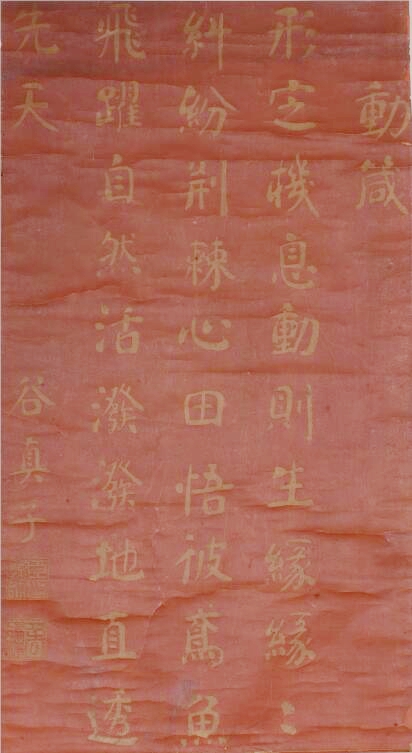 動箴
形定機息動則生緣緣〻
糾紛荆棘心田悟彼鳶魚
飛躍自然活潑潑地直透
先天
谷真子